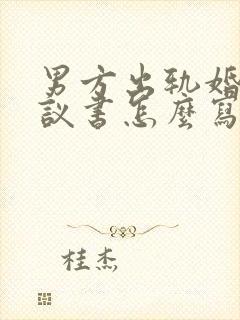 男方出轨婚
议书怎麼寫
桂杰